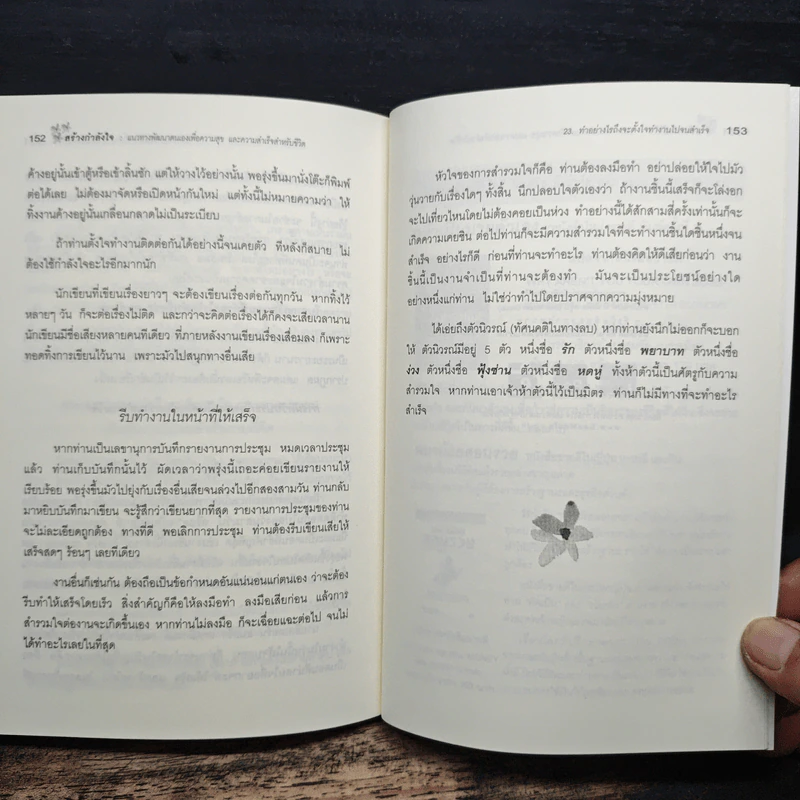 152 สร้างกำลังใจ : แนวทางพัฒนาตนเองเพื่อความสุข และความสำเร็จสำหรับชีวิต
ค้างอยู่นั้นเข้าตู้หรือเข้าลิ้นชัก แต่ให้วางไว้อย่างนั้น พอรุ่งขึ้นมานั่งโต๊ะก็พิมพ์
ต่อได้เลย ไม่ต้องมาจัดหรือเปิดหน้ากันใหม่ แต่ทั้งนี้ไม่หมายความว่า ให้
ทิ้งงานค้างอยู่นั้นเกลื่อนกลาดไม่เป็นระเบียบ
ถ้าท่านตั้งใจทำงานติดต่อกันได้อย่างนี้จนเคยตัว ทีหลังก็สบาย ไม่
ต้องใช้กำลังใจอะไรอีกมากนัก
นักเขียนที่เขียนเรื่องยาวๆ จะต้องเขียนเรื่องต่อกันทุกวัน หากทิ้งไว้
หลายๆ วัน ก็จะต่อเรื่องไม่ติด และกว่าจะคิดต่อเรื่องได้ก็คงจะเสียเวลานาน
นักเขียนมีชื่อเสียงหลายคนทีเดียว ที่ภายหลังงานเขียนเรื่องเสื่อมลง ก็เพราะ
ทอดทิ้งการเขียนไว้นาน เพราะมัวไปสนุกทางอื่นเสีย
รีบทำงานในหน้าที่ให้เสร็จ
หากท่านเป็นเลขานุการบันทึกรายงานการประชุม หมดเวลาประชุม
แล้ว ท่านเก็บบันทึกนั้นไว้ ผัดเวลาว่าพรุ่งนี้เถอะค่อยเขียนรายงานให้
เรียบร้อย พอรุ่งขึ้นมัวไปยุ่งกับเรื่องอื่นเสียจนล่วงไปอีกสองสามวัน ท่านกลับ
มาหยิบบันทึกมาเขียน จะรู้สึกว่าเขียนยากที่สุด รายงานการประชุมของท่าน
จะไม่ละเอียดถูกต้อง ทางที่ดี พอเลิกการประชุม ท่านต้องรีบเขียนเสียให้
เสร็จสดๆ ร้อนๆ เลยทีเดียว
งานอื่นก็เช่นกัน ต้องถือเป็นข้อกำหนดอันแน่นอนแก่ตนเอง ว่าจะต้อง
รีบทำให้เสร็จโดยเร็ว สิ่งสำคัญก็คือให้ลงมือทำ ลงมือเสียก่อน แล้วการ
สำรวมใจต่องานจะเกิดขึ้นเอง หากท่านไม่ลงมือ ก็จะเฉื่อยแฉะต่อไป จนไม่
ได้ทำอะไรเลยในที่สุด
23. ทำอย่างไรถึงจะตั้งใจทำงานไปจนสำเร็จ 153
หัวใจของการสำรวมใจก็คือ ท่านต้องลงมือทำ อย่าปล่อยให้ใจไปมัว
วุ่นวายกับเรื่องใดๆ ทั้งสิ้น นึกปลอบใจตัวเองว่า ถ้างานชิ้นนี้เสร็จก็จะโล่งอก
จะไปเที่ยวไหนโดยไม่ต้องคอยเป็นห่วง ทำอย่างนี้ได้สักสามสี่ครั้งเท่านั้นก็จะ
เกิดความเคยชิน ต่อไปท่านก็จะมีความสำรวมใจที่จะทำงานชิ้นใดชิ้นหนึ่งจน
สำเร็จ อย่างไรก็ดี ก่อนที่ท่านจะทำอะไร ท่านต้องคิดให้ดีเสียก่อนว่า งาน
ชิ้นนี้เป็นงานจำเป็นที่ท่านจะต้องทำ มันจะเป็นประโยชน์อย่างใด
อย่างหนึ่งแก่ท่าน ไม่ใช่ว่าทำไปโดยปราศจากความมุ่งหมาย
ได้เอ่ยถึงตัวนิวรณ์ (ทัศนคติในทางลบ) หากท่านยังนึกไม่ออกก็จะบอก
ให้ ตัวนิวรณ์มีอยู่ 5 ตัว หนึ่งชื่อ รัก ตัวหนึ่งชื่อ พยาบาท ตัวหนึ่งชื่อ
ง่วง ตัวหนึ่งชื่อ ฟุ้งซ่าน ตัวหนึ่งชื่อ หดหู่ ทั้งห้าตัวนี้เป็นศัตรูกับความ
สำรวมใจ หากท่านเอาเจ้าห้าตัวนี้ไว้เป็นมิตร ท่านก็ไม่มีทางที่จะทำอะไร
สำเร็จ